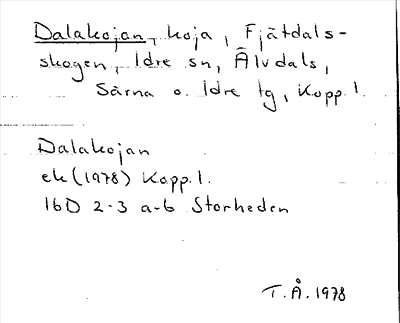 Dalakojan, koja, Fjätdals-
skogen, Idre sn, Älvdals,
Särna o. Idre tg, Kopp. l.
Dalakojan
ek (1978) Kopp. l.
16D 2-3 a-b Storheden
T.Å. 1978